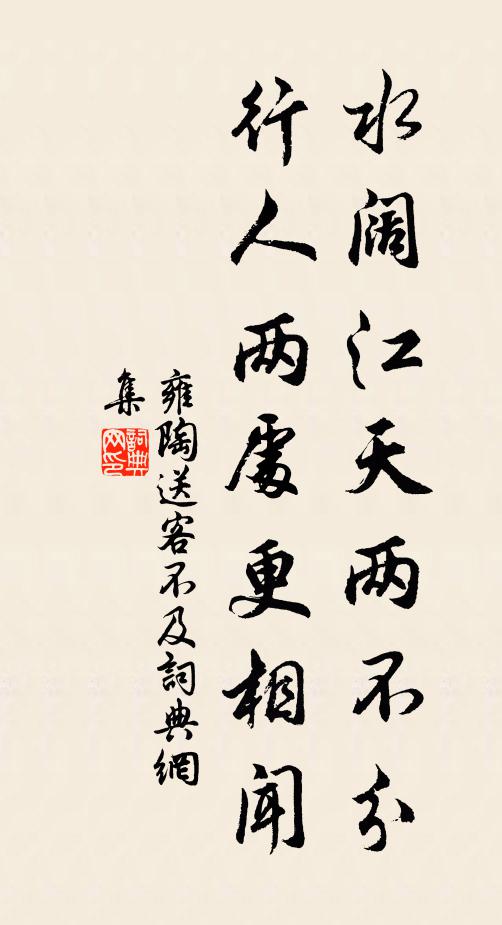 水阔江天两不分
行人两處更相闻
雍陶送客不及詞典網
集
詞典网印